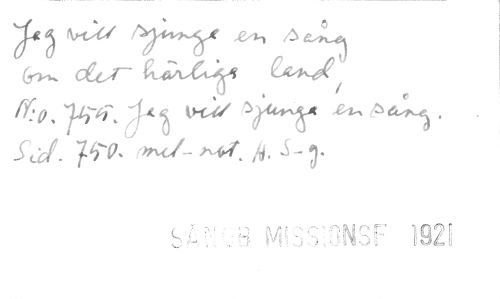 Jag vill sjunga en sång
om det härliga land,
N:o. 755. Jag vill sjunga en sång.
Sid. 750. mel-not. A. S-g.
SÅNGB MISSIONSF 1921